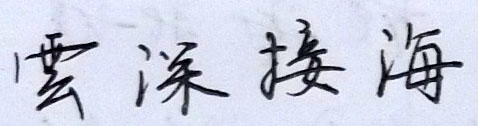 雲深接海